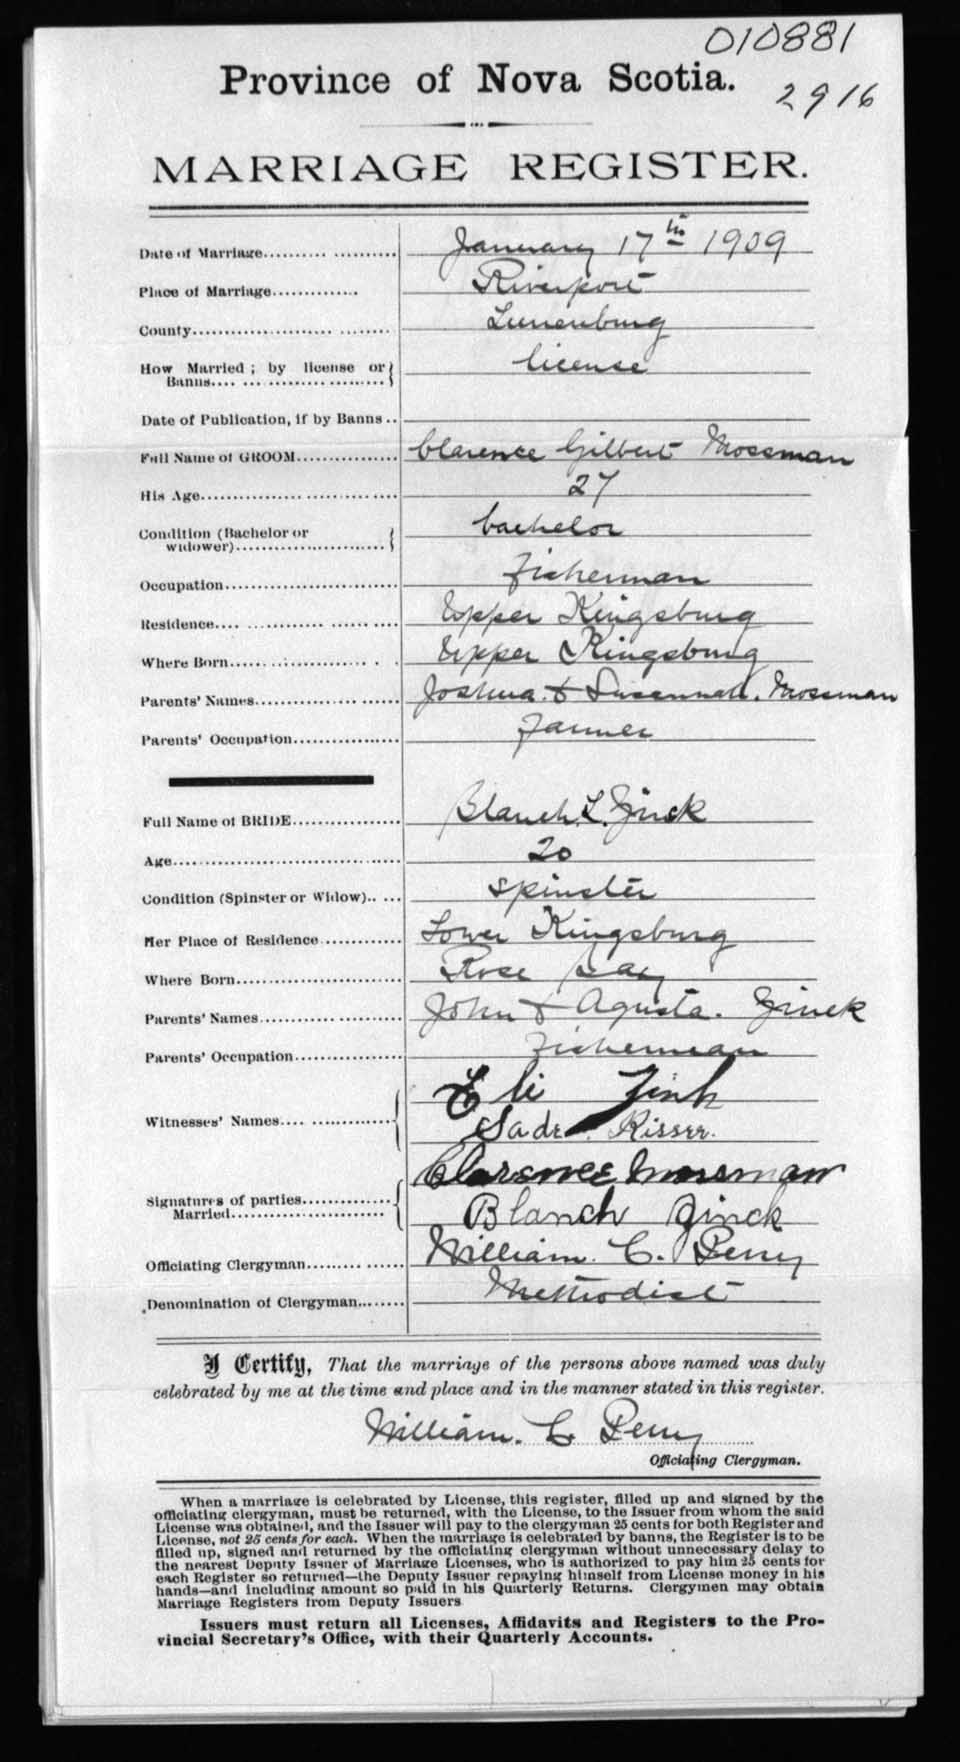 010881
Province of Nova Scotia.
2916
MARRIAGE REGISTER.
Date of Marriage.......... January 17th 1909
Place of Marriage.......... Riverport
County.......... Lunenburg
How Married ; by license or
Banns.......... license
Date of Publication, if by Banns ..
Full Name of GROOM.......... Clarence Gilbert Mossman
His Age.......... 27
Condition (Bachelor or
widower).......... bachelor
Occupation.......... Fisherman
Residence.......... Upper Kingsburg
Where Born.......... Upper Kingsburg
Parents' Names.......... Joshua & Susannah. Mossman
Parents' Occupation.......... Farmer
Full Name of BRIDE.......... Blanch. L. Zinck
Age.......... 20
Condition (Spinster or Widow).. .... spinster
Her Place of Residence.......... Lower Kingsburg
Where Born.......... Rose Bay
Parents' Names.......... John & Agusta. Zinck
Parents' Occupation.......... Fisherman
Witnesses' Names.......... Eli Zink
Sade Risser.
Signatures of parties
Married.......... Clarence Mossman
Blanch Zinck
Officiating Clergyman.......... William. C. Perry
Denomination of Clergyman.......... Methodist
I Certify, That the marriage of the persons above named was duly
celebrated by me at the time and place and in the manner stated in this register.
William. C Perry
Officiating Clergyman.
When a marriage is celebrated by License, this register, filled up and signed by the
officiating clergyman, must be returned, with the License, to the Issuer from whom the said
License was obtained, and the Issuer will pay to the clergyman 25 cents for both Register and
License, not 25 cents for each. When the marriage is celebrated by banns, the Register is to be
filled up, signed and returned by the officiating clergyman without unnecessary delay to
the nearest Deputy Issuer of Marriage Licenses, who is authorized to pay him 25 cents for
each Register so returned—the Deputy Issuer repaying himself from License money in his
hands—and including amount so paid in his Quarterly Returns. Clergymen may obtain
Marriage Registers from Deputy Issuers
Issuers must return all Licenses, Affidavits and Registers to the Pro-
vincial Secretary's Office, with their Quarterly Accounts.